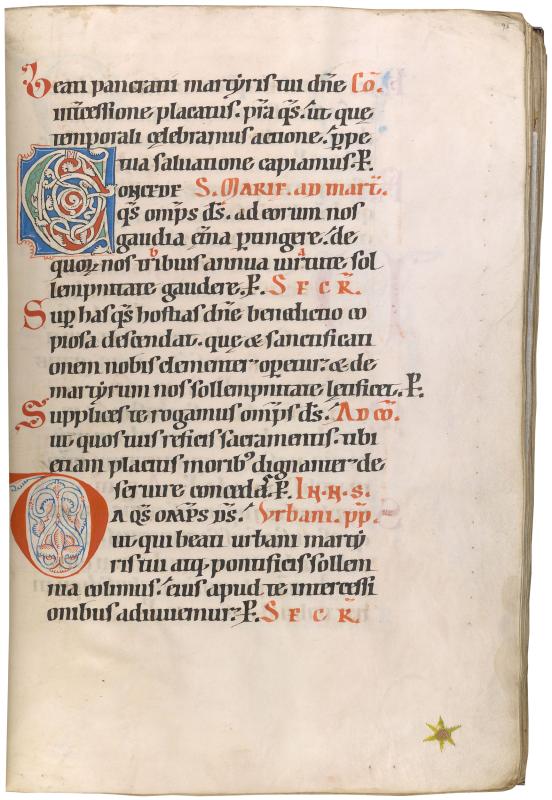 Beati pancratii martyris tui dn̄e Cō.
int̄cessione placatus. p̄ra q̄s. ut que
temporali celebramus actione. ꝑpe
tua saluatione capiamus. P.
CONCEDE S. MARIE. AD MART̄.
q̄s omp̄s d̄s. ad eorum nos
gaudia et̄na ꝑtingere. de
quoꝝ nos tribuis annua uirtute sol
lempnitate gaudere. P. S F C R̄.
Suꝑ has q̄s hostias dn̄e benedictio co
piosa descendat. que & sanctificati
onem nobis clementer oꝑetur. & de
martyrum nos sollempnitate letificet. P.
Supplices te rogamus omp̄s d̄s. AD CŌ.
ut quos tuis reficis sacramentis. tibi
etiam placitis moribꝰ dignanter de
seruire concedas. P. IN. N. S.
DA Q̄S OMP̄S D̄S. Vrbani. pp̄.
ut qui beati urbani marty
ris tui atq; pontificis sollem
nia colimus. eius apud te intercessi
onibus adiuuemur. P. S F C R̄.